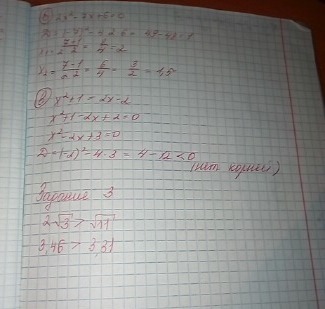 ① 2x² - 7x + 6 = 0
D = (-7)² - 4·2·6 = 49 - 48 = 1
x₁ = (7+1)/(2·2) = 8/4 = 2
x₂ = (7-1)/(2·2) = 6/4 = 3/2 = 1,5
② x² + 1 = 2x - 2
x² + 1 - 2x + 2 = 0
x² - 2x + 3 = 0
D = (-2)² - 4·3 = 4 - 12 < 0
(нет корней)
Задание 3
2√3 > √11
3,46 > 3,31